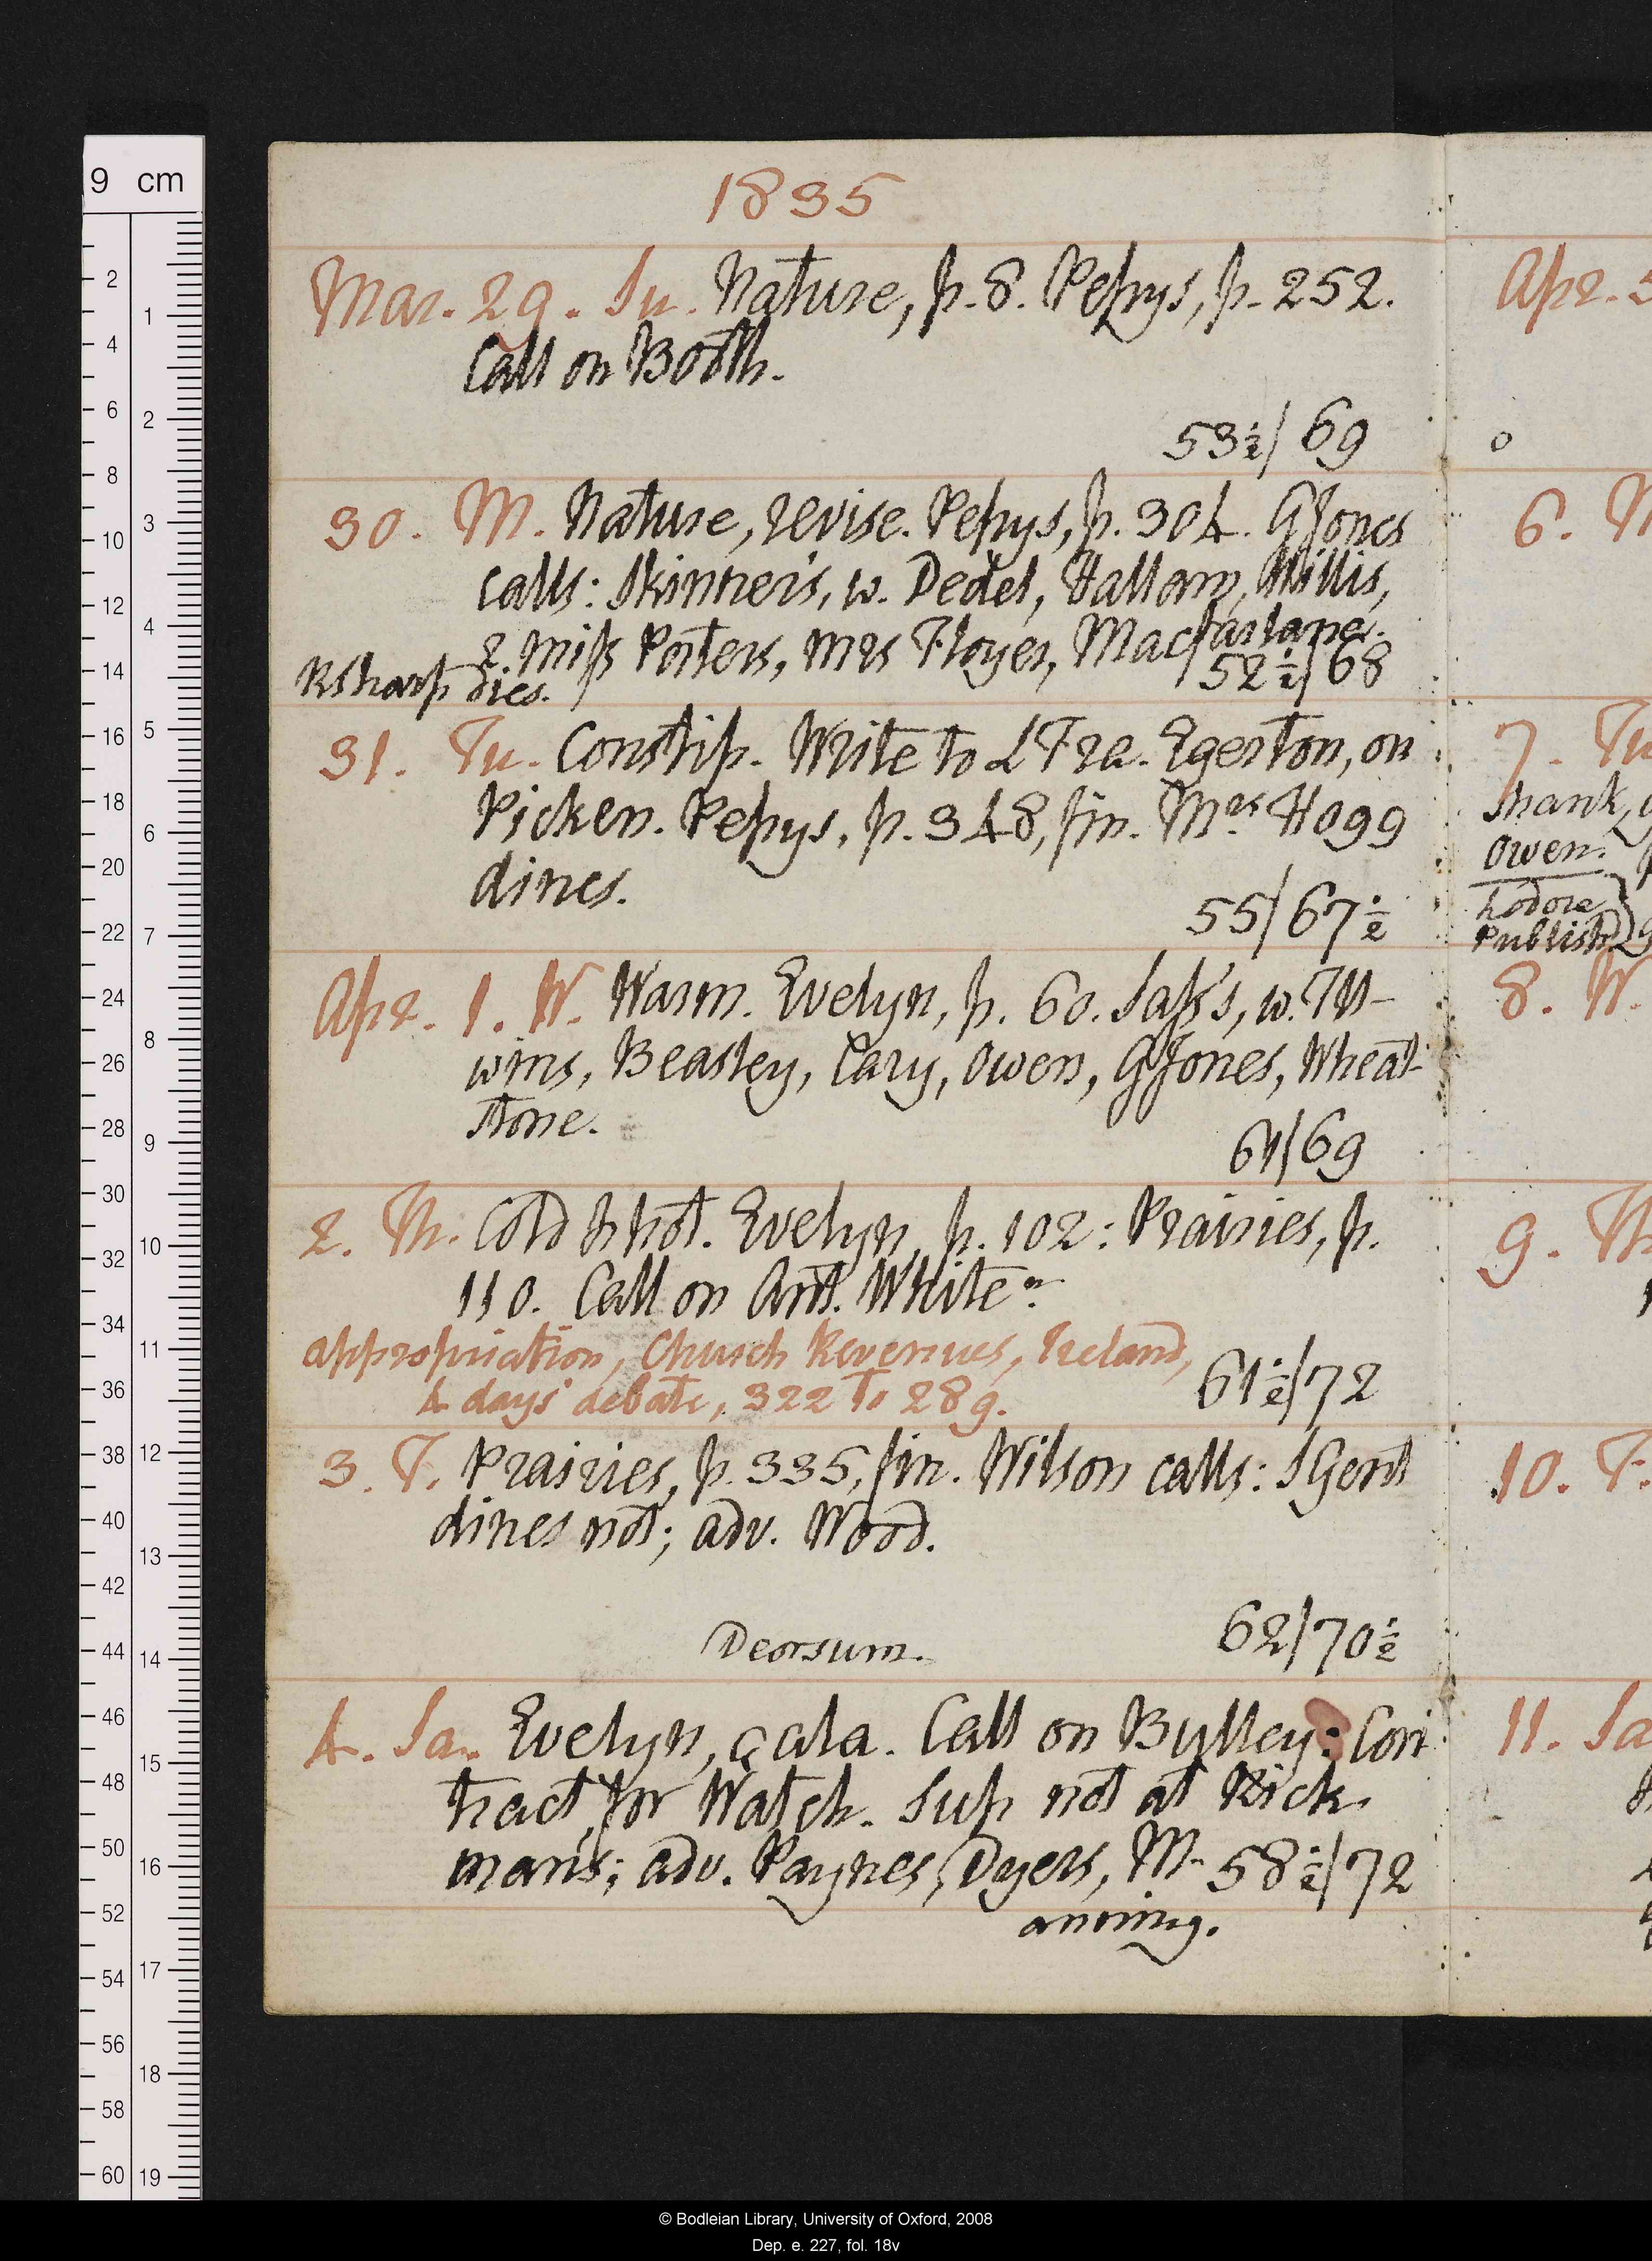 1835
Mar. 29. Su. Nature, p. 8. Pepys, p. 252.
Call on Booth.
53½/69
30. M. Nature, revise. Pepys, p. 304. GJones
calls: Skinner's, w. Dedel, Hallam, Willis,
2 miss Porters, mrs Floyer, Macfarlane.
RSharp dies.
52½/68
31. Tu. Constip. Write to L Fra. Egerton, on
Picken. Pepys, p. 348, fin. Mrs Hogg
dines.
55/67½
Apr. 1. W. Warm. Evelyn, p. 60. Sass's, w. TU-
wins, Beasley, Cary, Owen, GJones, Wheat-
stone.
61/69
2. Th. Cold & hot. Evelyn, p. 102: Prairies, p.
110. Call on Ant. White n.
appropriation, Church Revenues, Ireland,
4 days' debate, 322 to 289.
61½/72
3. F. Prairies, p. 335, fin. Wilson calls: SGent
dines not; adv. Wood.
Deorsum.
62/70½
4. Sa. Evelyn, çala. Call on Bylley: Con
tract for Watch. Sup not at Rick
man's; adv. Paynes, Dyers, M-
58½/72
anning.
Apr. 5
0
6. M
7. Tu
Shank,
Owen.
Lodore
Publish
8. W.
9. Th
10. F.
11. Sa
9 cm
2
4
6
8
10
12
14
16
18
20
22
24
26
28
30
32
34
36
38
40
42
44
46
48
50
52
54
56
58
60
1
2
3
4
5
6
7
8
9
10
11
12
13
14
15
16
17
18
19
© Bodleian Library, University of Oxford, 2008
Dep. e. 227, fol. 18v